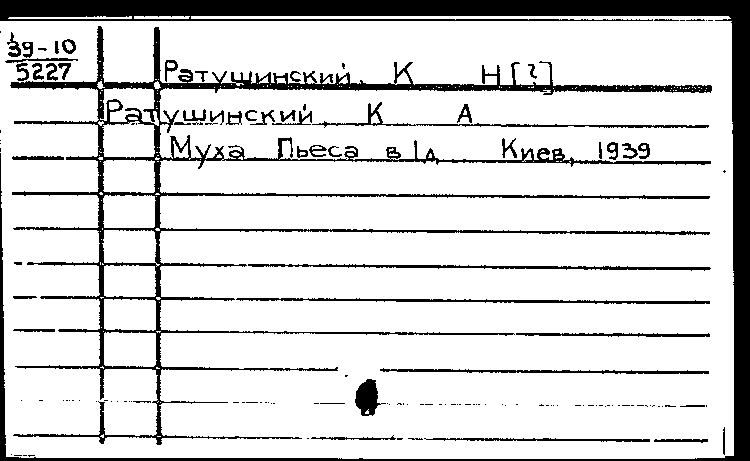 39-10
5227
Ратушинский, К Н[?]
Ратушинский, К А
Муха Пьеса в 1д. Киев, 1939